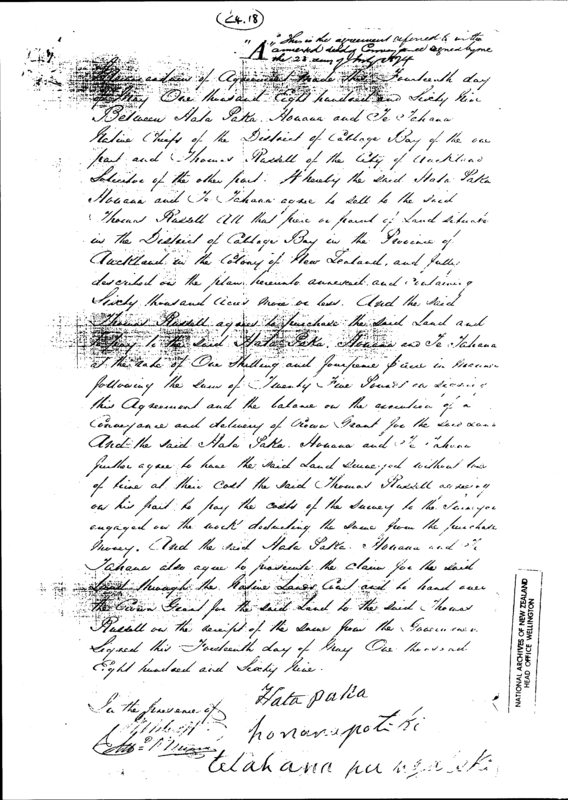 C4.18
"A" This is the agreement referred to in the
annexed deed of Conveyance signed by me
the 23 day of July 1874
Memorandum of Agreement made this Fourteenth day
of May One thousand Eight hundred and Sixty Nine
Between Hata Paka, Honana and Te Tahana
Native Chiefs of the District of Cabbage Bay of the one
part and Thomas Russell of the City of Auckland
Solicitor of the other part. Whereby the said Hata Paka
Honana and Te Tahana agree to sell to the said
Thomas Russell All that piece or parcel of Land situate
in the District of Cabbage Bay in the Province of
Auckland in the Colony of New Zealand, and fully
described on the plan hereunto annexed and containing
Sixty thousand acres more or less. And the said
Thomas Russell agrees to purchase the said Land and
to pay to the said Hata Paka, Honana and Te Tahana
at the rate of One Shilling and fourpence acre in manner
following the sum of Twenty Five Pounds on signing
this Agreement and the balance on the execution of a
Conveyance and delivery of Crown Grant for the said Land
And the said Hata Paka Honana and Te Tahana
further agree to have the said Land surveyed without loss
of time at their cost the said Thomas Russell agreeing
on his part to pay the costs of the survey to the Surveyor
engaged on the work deducting the same from the purchase
money. And the said Hata Paka Honana and Te
Tahana also agree to prosecute the claim for the said
Land through the Native Lands Court and to hand over
the Crown Grant for the said Land to the said Thomas
Russell on the receipt of the same from the Government
Signed this Fourteenth day of May One thousand
Eight hundred and Sixty Nine.
In the presence of
Hata paka
honana potiki
te tahana
NATIONAL ARCHIVES OF NEW ZEALAND
HEAD OFFICE WELLINGTON